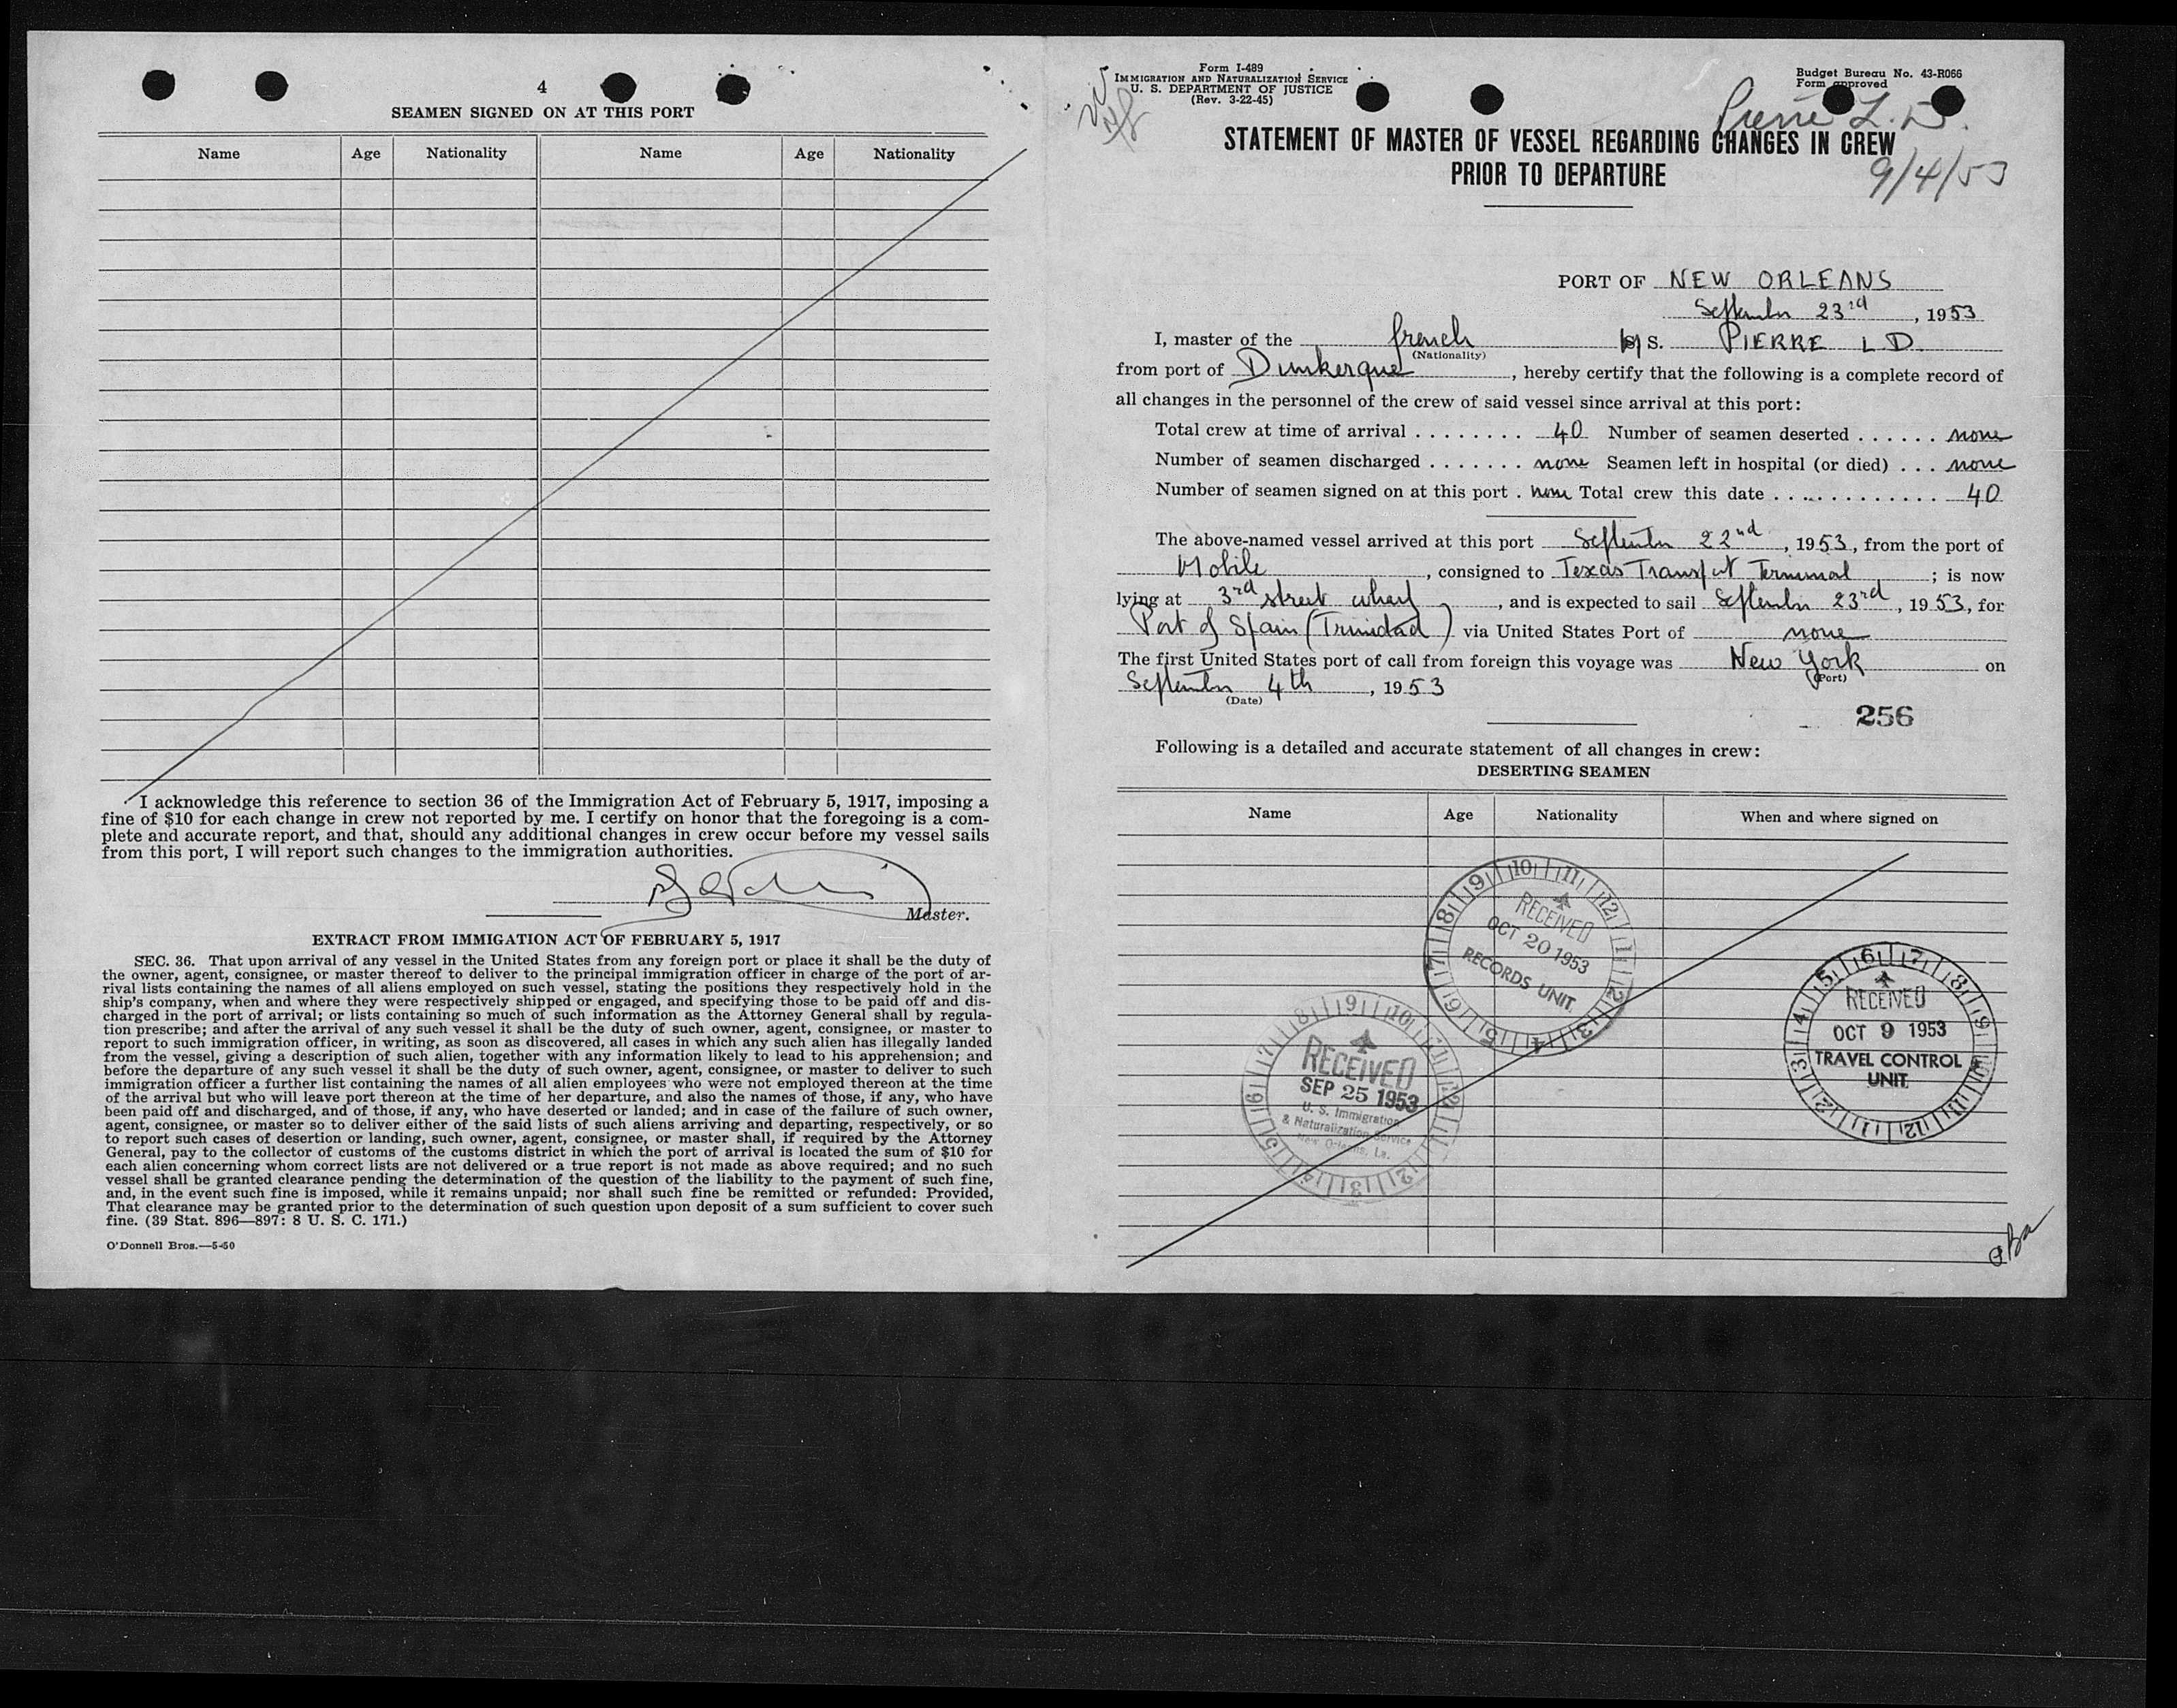 4
SEAMEN SIGNED ON AT THIS PORT
Name Age Nationality Name Age Nationality
I acknowledge this reference to section 36 of the Immigration Act of February 5, 1917, imposing a
fine of $10 for each change in crew not reported by me. I certify on honor that the foregoing is a com-
plete and accurate report, and that, should any additional changes in crew occur before my vessel sails
from this port, I will report such changes to the immigration authorities.
Master.
EXTRACT FROM IMMIGATION ACT OF FEBRUARY 5, 1917
SEC. 36. That upon arrival of any vessel in the United States from any foreign port or place it shall be the duty of
the owner, agent, consignee, or master thereof to deliver to the principal immigration officer in charge of the port of ar-
rival lists containing the names of all aliens employed on such vessel, stating the positions they respectively hold in the
ship's company, when and where they were respectively shipped or engaged, and specifying those to be paid off and dis-
charged in the port of arrival; or lists containing so much of such information as the Attorney General shall by regula-
tion prescribe; and after the arrival of any such vessel it shall be the duty of such owner, agent, consignee, or master to
report to such immigration officer, in writing, as soon as discovered, all cases in which any such alien has illegally landed
from the vessel, giving a description of such alien, together with any information likely to lead to his apprehension; and
before the departure of any such vessel it shall be the duty of such owner, agent, consignee, or master to deliver to such
immigration officer a further list containing the names of all alien employees who were not employed thereon at the time
of the arrival but who will leave port thereon at the time of her departure, and also the names of those, if any, who have
been paid off and discharged, and of those, if any, who have deserted or landed; and in case of the failure of such owner,
agent, consignee, or master so to deliver either of the said lists of such aliens arriving and departing, respectively, or so
to report such cases of desertion or landing, such owner, agent, consignee, or master shall, if required by the Attorney
General, pay to the collector of customs of the customs district in which the port of arrival is located the sum of $10 for
each alien concerning whom correct lists are not delivered or a true report is not made as above required; and no such
vessel shall be granted clearance pending the determination of the question of the liability to the payment of such fine,
and, in the event such fine is imposed, while it remains unpaid; nor shall such fine be remitted or refunded: Provided,
That clearance may be granted prior to the determination of such question upon deposit of a sum sufficient to cover such
fine. (39 Stat. 896—897: 8 U. S. C. 171.)
O'Donnell Bros.—5-50
Form I-489
IMMIGRATION AND NATURALIZATION SERVICE
U. S. DEPARTMENT OF JUSTICE
(Rev. 3-22-45)
Budget Bureau No. 43-R066
Form approved
Pierre L. D.
STATEMENT OF MASTER OF VESSEL REGARDING CHANGES IN CREW
PRIOR TO DEPARTURE
9/4/53
PORT OF NEW ORLEANS
September 23rd, 1953
I, master of the french M/S. PIERRE L D
(Nationality)
from port of Dunkerque, hereby certify that the following is a complete record of
all changes in the personnel of the crew of said vessel since arrival at this port:
Total crew at time of arrival ........ 40 Number of seamen deserted ...... none
Number of seamen discharged ....... none Seamen left in hospital (or died) ... none
Number of seamen signed on at this port . none Total crew this date ............. 40
The above-named vessel arrived at this port September 22nd, 1953, from the port of
Mobile, consigned to Texas Transport Terminal; is now
lying at 3rd street wharf, and is expected to sail September 23rd, 1953, for
Port of Spain (Trinidad) via United States Port of none
The first United States port of call from foreign this voyage was New York on
(Port)
September 4th, 1953
(Date)
256
Following is a detailed and accurate statement of all changes in crew:
DESERTING SEAMEN
Name Age Nationality When and where signed on
RECEIVED
OCT 20 1953
RECORDS UNIT
RECEIVED
OCT 9 1953
TRAVEL CONTROL
UNIT
RECEIVED
SEP 25 1953
U. S. Immigration
& Naturalization Service
New Orleans, La.